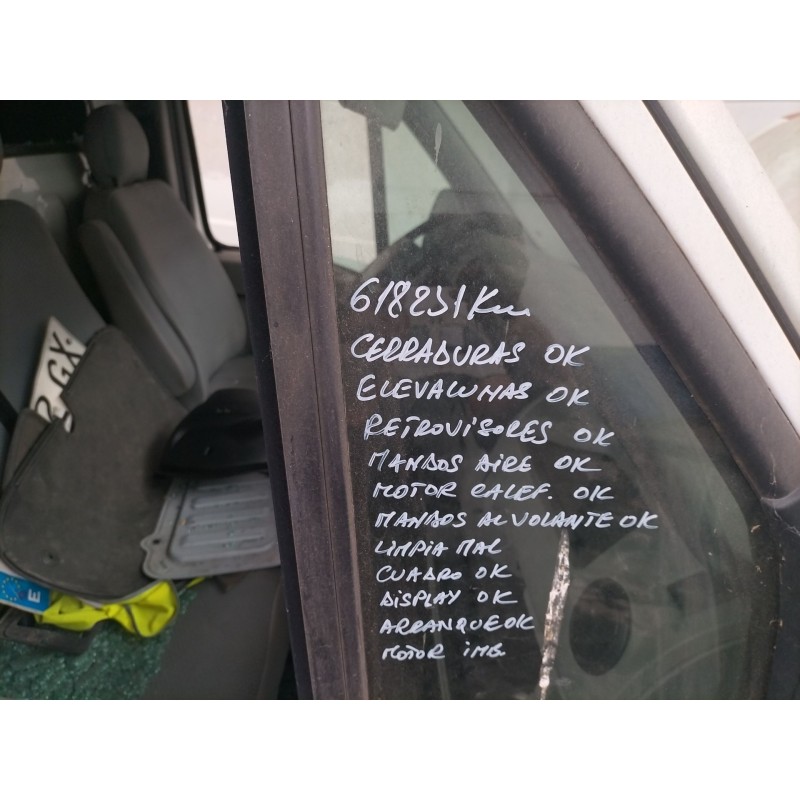 618231 Km
CERRADURAS OK
ELEVALUNAS OK
RETROVISORES OK
MANDOS AIRE OK
MOTOR CALEF. OK
MANDOS AL VOLANTE OK
LIMPIA MAL
CUADRO OK
DISPLAY OK
ARRANQUE OK
MOTOR IMB.
GX
E